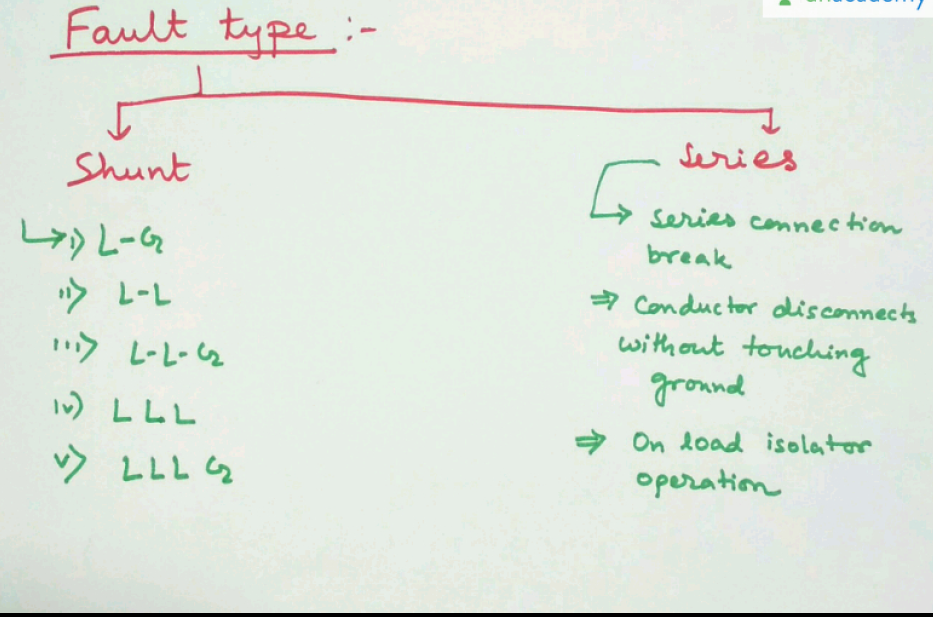 Fault type :-
Shunt
Series
i) L-G
ii) L-L
iii) L-L-G
iv) L L L
v) L L L G
series connection
break
⇒ Conductor disconnects
without touching
ground
⇒ On load isolator
operation